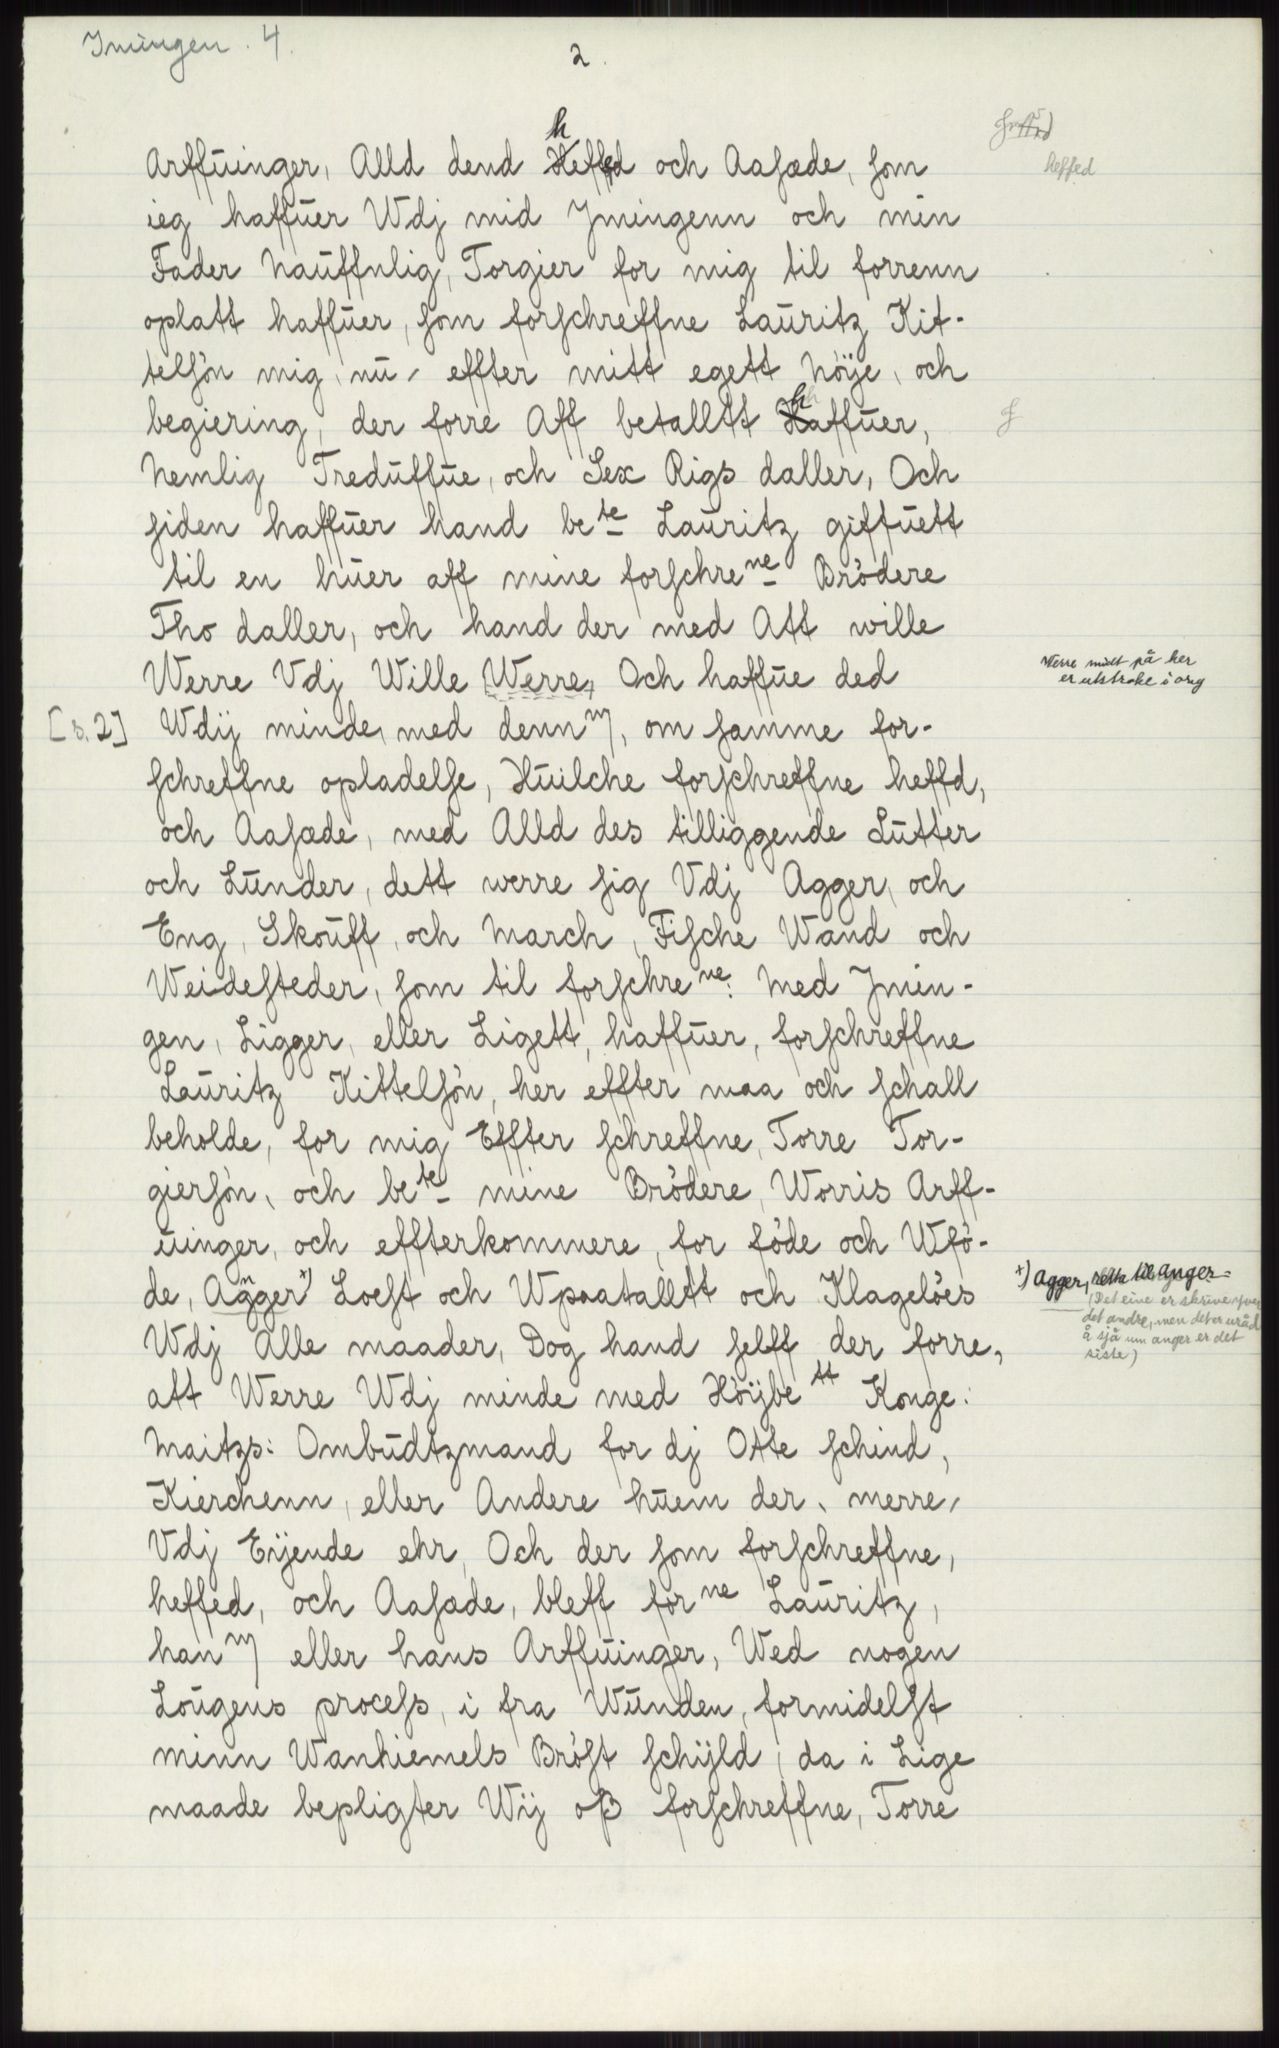 Imingen. 4.
2.
Arffuinger, Alld dend heffed och Aasæde, som
heffed
ieg haffuer Wdj mid Jmingenn och min
Fader Nauffnlig, Torgier for mig til forrenn
oplatt haffuer, som forschreffne Lauritz Kit-
telsøn mig, nu, effter mitt egett Nöye, och
begiering, der forre Aff betalltt haffuer,
Nemlig Treduffue, och Sex Rigs daller, Och
siden haffuer hand be te Lauritz giffuett
til en huer aff mine forschre ne Brödere
Tho daller, och hand der med Att wille
Werre Vdj Wille Werre, Och haffue ded
Werre midt på her
er utstroke i orig
[s. 2] Wdij minde, med denn m, om samme for-
schreffne opladelse, Huilche forschreffne heffd,
och Aasæde, med Alld des tilliggende Lutter
och Lunder, dett werre sig Vdj Agger, och
Eng, Skouff, och March, Fische Wand och
Weidesteder, som til forschre ne: Med Jmin-
gen, Ligger, eller Ligett, haffuer, forschreffne
Lauritz Kittelsøn, her effter maa och schall
beholde, for mig Effter schreffne, Torre Tor-
giersøn, och be te mine Brödere, Worris Arff-
uinger, och effterkommere, for föde och Wfö-
de, Agger +) Loest och Wpaatalltt och Klagelöes
+) Agger, retta til Anger
(Det eine er skrive yver
det andre, men det er uråd
å sjå um anger er det
siste)
Wdj Alle maader, Dog hand selff der forre,
att Werre Wdj minde med Höijbe tt Konge:
Maitzs: Ombudtzmand for dj Otte schind,
Kierchenn, eller Andere huem der, merre,
Vdj Eijende ehr, Och der som forschreffne,
heffed, och Aasæde, bleff for ne Lauritz,
han m eller hans Arffuinger, Wed nogen
Lougens process, i fra Wunden, formidelst
minn Wanhiemels Bröst schijld, da i Lige
maade bepligter Wij oß forschreffne, Torre